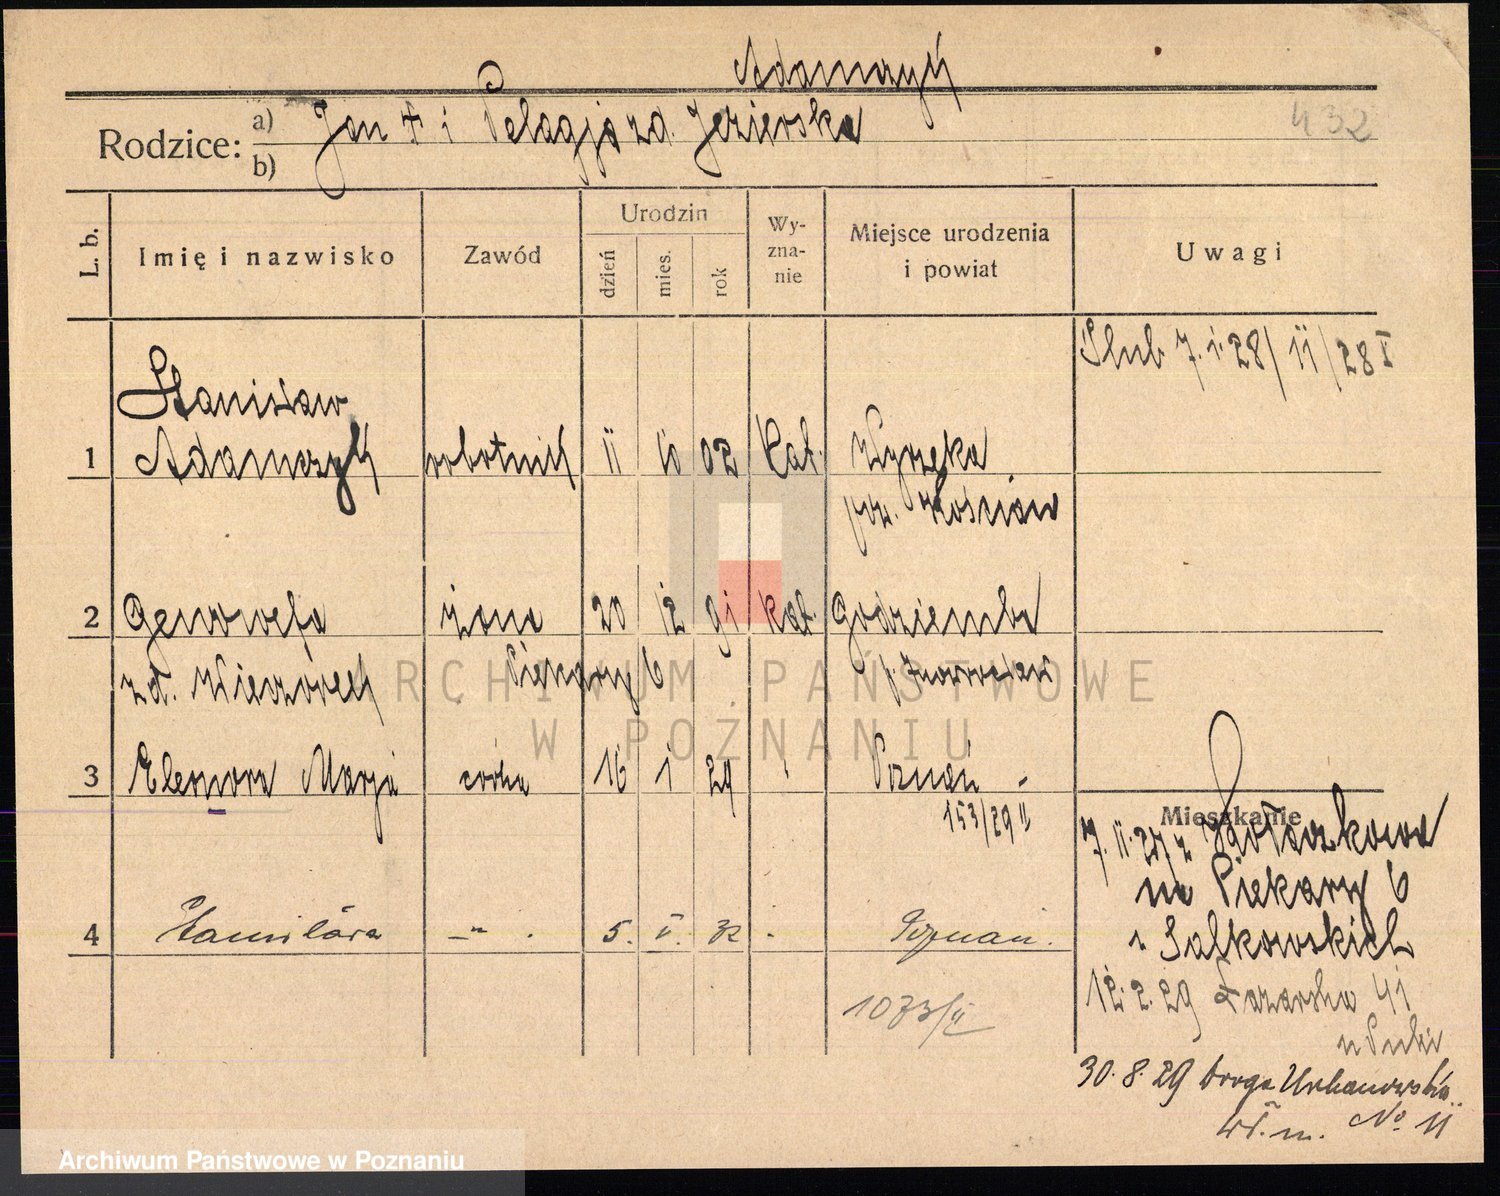 Adamczyk
432
Rodzice: a) Jan + i Pelagja zd. Jezierska
b)
L. b.
Imię i nazwisko
Zawód
Urodzin
dzień
mies.
rok
Wy-
zna-
nie
Miejsce urodzenia
i powiat
Uwagi
Ślub 7. i 28/11/28 I
Stanisław
1 Adamczyk robotnik 11 10 02 kat. Wyrzeka
pow. Kościan
2 Genowefa żona 20 12 01 kat. Godziemba
zd. Wieczorek Piekary 6 p. Inowrocław
3 Eleonora Marja córka 16 1 29 Poznań
153/29 II
4 Stanisława -"- 5. V. 32 Poznań.
1073/II
Mieszkanie
7. 11. 27 z Kołaczkowa
na Piekary 6
u Salkowskich
12. 2. 29 Łazarska 41
30. 8. 29 Droga Urbanowska
wł. m. No 11
ARCHIWUM PAŃSTWOWE
W POZNANIU
Archiwum Państwowe w Poznaniu